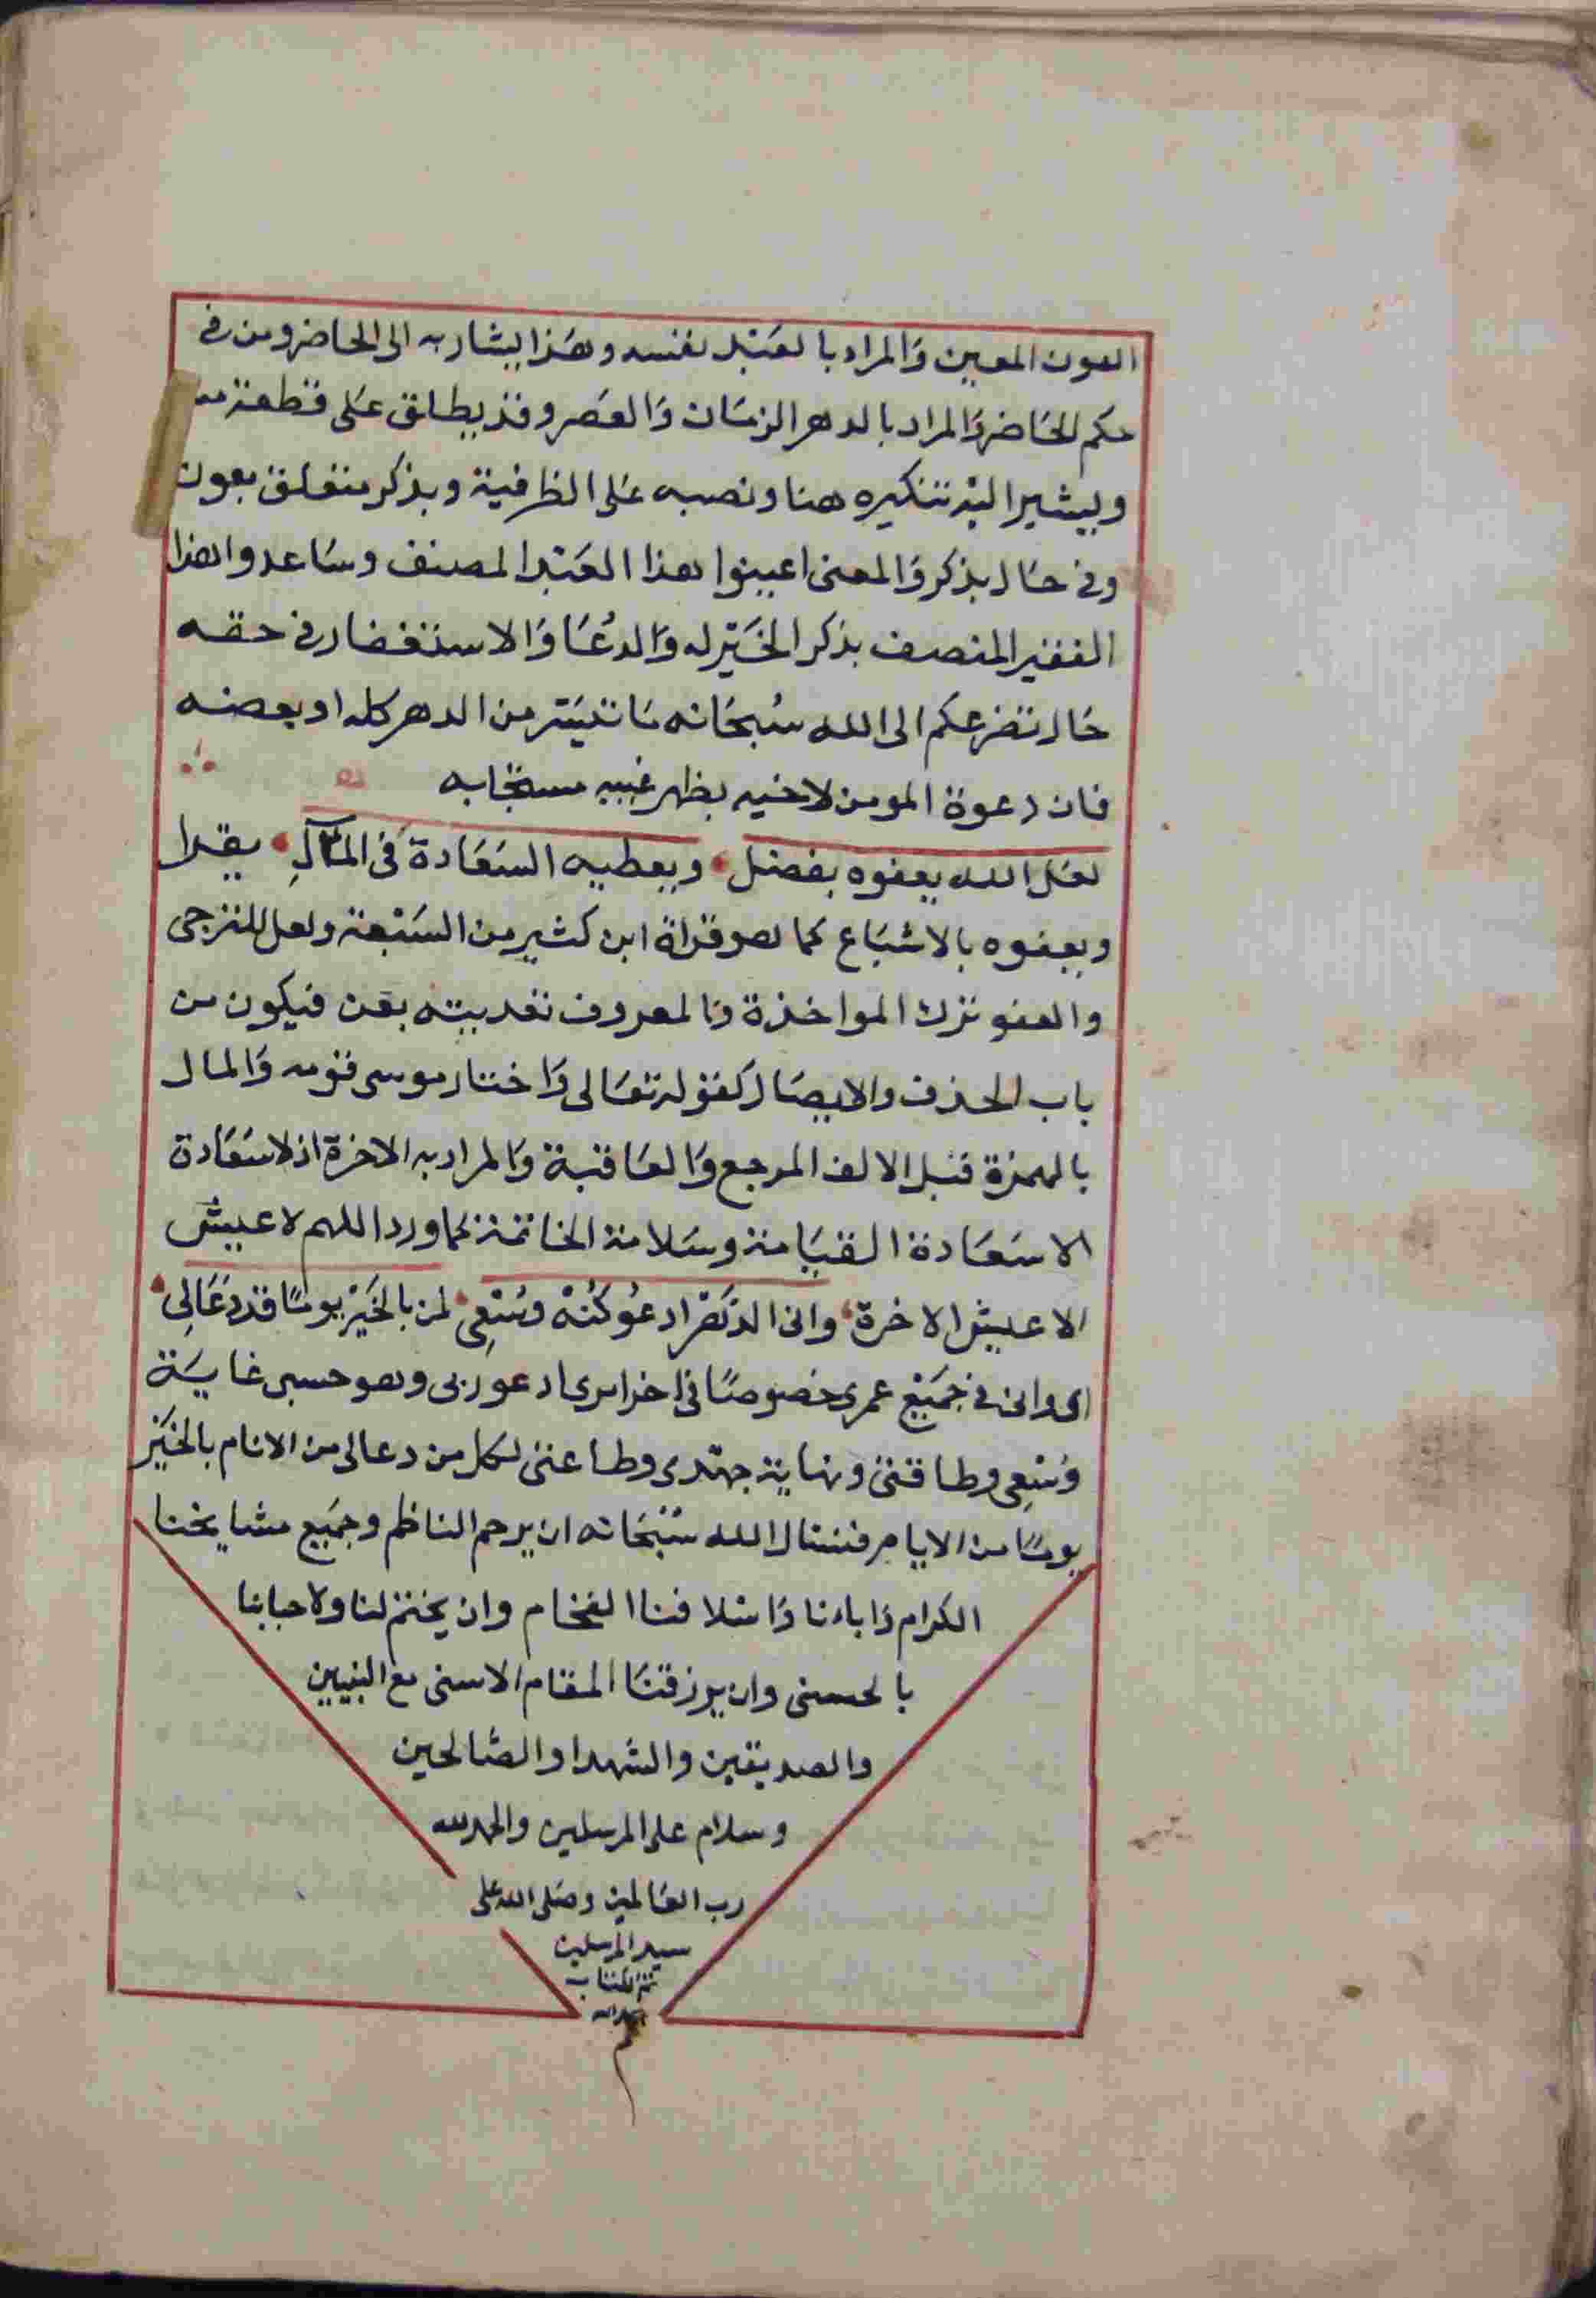 العون المعين وَالمراد بالعَبْد نفسه وهَذا يشار به الى الحاضر ومن في
حكم الحَاضر وَالمراد بالدهر الزمَان وَالعَصر وقد يطلق عَلى قطعة منه
ويشير اليْه تنكيره هنا ونصبه عَلى الظرفية وبذكر متعلق بعون
وفي حَال بذكر وَالمعنى اعينوا هذا العَبْد المصنف وسَاعدوا هذا
الفقير المتصف بذكر الخَيْر له وَالدُعَا وَالاستغفار في حقه
حَال تضرعكم الى الله سُبحَانه مَا تيَسّر من الدهر كله او بعضه
فان دعوة المومن لاخيه بظهر غيبه مستجابه
لعَل الله يعفوه بفضل ويعطيه السَعَادة في المَآلِ يقرا
ويعفوه بالاشبَاع كما هو قراة ابن كثير من السَبْعة ولعل للترجى
والعفو ترك المواخذة وَالمعروف تعديته بعن فيكون من
باب الحذف والايصَال كَقوله تعَالى وَاختار موسى قومه وَالمال
بالهمزة قبْل الالف المرجع وَالعَاقبة وَالمراد به الاخرة اذ لا سَعَادة
الا سَعَادة القيَامة وسَلامة الخاتمة كما ورد اللهم لا عيش
الا عيش الاخرة وانى الدَهْرَ ادعُو كُنْهَ وُسْعِى لمن بالخَيْر يومًا قد دَعَالِى
اى وانى في جَميْع عمرى خصوصًا في اخر امرى ادعو ربى وهو حسبى غايَة
وُسْعِى وطاقتى ونهاية جهْدى وطاعتى لكل من دعالى من الانام بالخَيْر
يومًا من الايام فنسال الله سُبْحَانه ان يرحم الناظم وجَميع مشايخنا
الكرام وَاباءنا وَاسْلافنا الفخام وان يختم لنا ولاحبابنا
بالحسنى وان يرزقنَا المقام الاسنى مع النبيين
والصديقين والشهدا والصَالحين
وسلام على المرسلين والحمد لله
رب العَالمين وصَلى الله على
سيد المرسلين
تم الكتاب
م